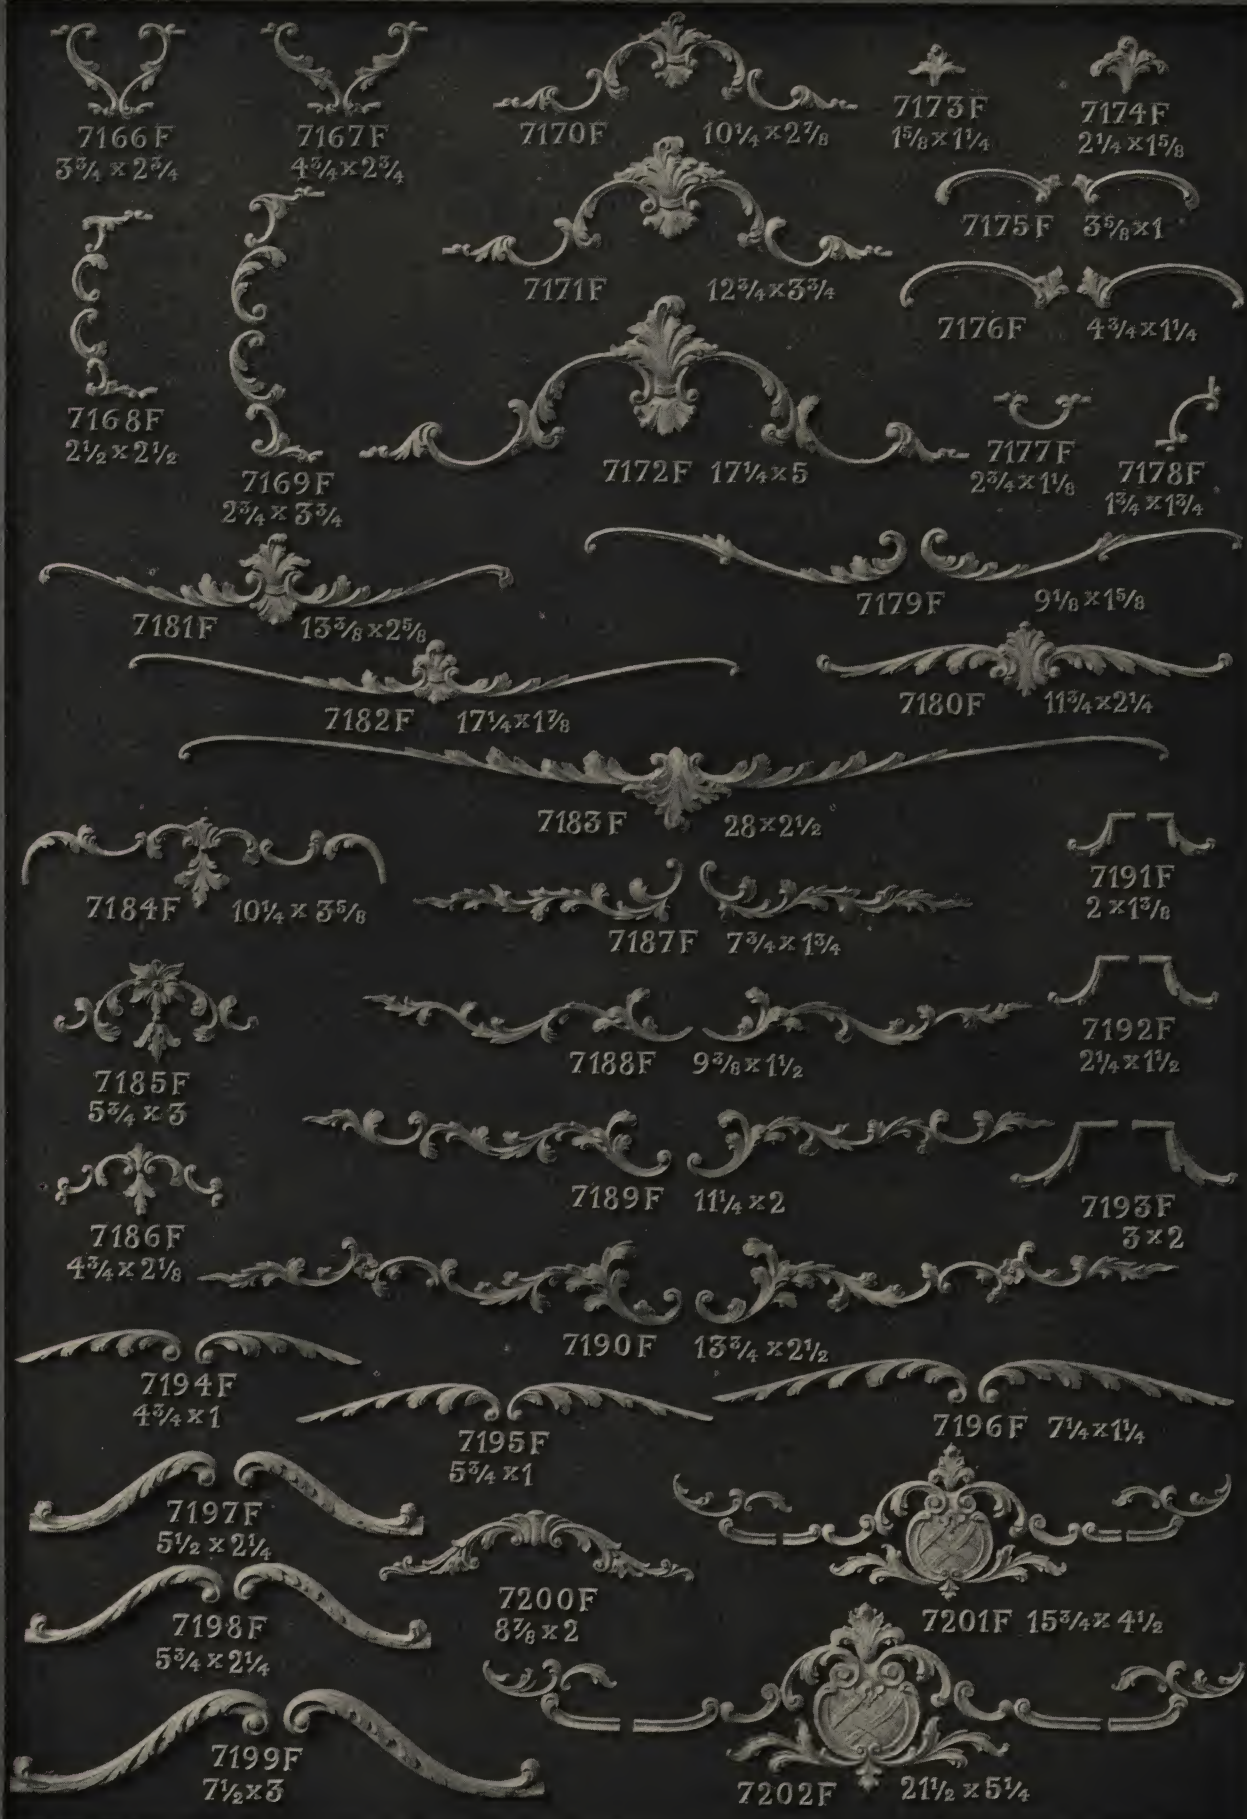 7166F
3¾ x 2¾
7167F
4¾ x 2¾
7170F 10¼ x 2⅞
7173F
1⅝ x 1¼
7174F
2¼ x 1⅝
7175F 3⅝ x 1
7171F 12¾ x 3¾
7176F 4¾ x 1¼
7168F
2½ x 2½
7169F
2¾ x 3¾
7172F 17¼ x 5
7177F
2¾ x 1⅛
7178F
1¾ x 1¾
7181F 13⅜ x 2⅝
7179F 9⅛ x 1⅝
7182F 17¼ x 1⅞
7180F 11¾ x 2¼
7183F 28 x 2½
7184F 10¼ x 3⅝
7187F 7¾ x 1¾
7191F
2 x 1⅜
7185F
5¾ x 3
7188F 9⅜ x 1½
7192F
2¼ x 1½
7186F
4¾ x 2⅛
7189F 11¼ x 2
7193F
3 x 2
7190F 13¾ x 2½
7194F
4¾ x 1
7195F
5¾ x 1
7196F 7¼ x 1¼
7197F
5½ x 2¼
7198F
5¾ x 2¼
7200F
8⅞ x 2
7201F 15¾ x 4½
7199F
7½ x 3
7202F 21½ x 5¼